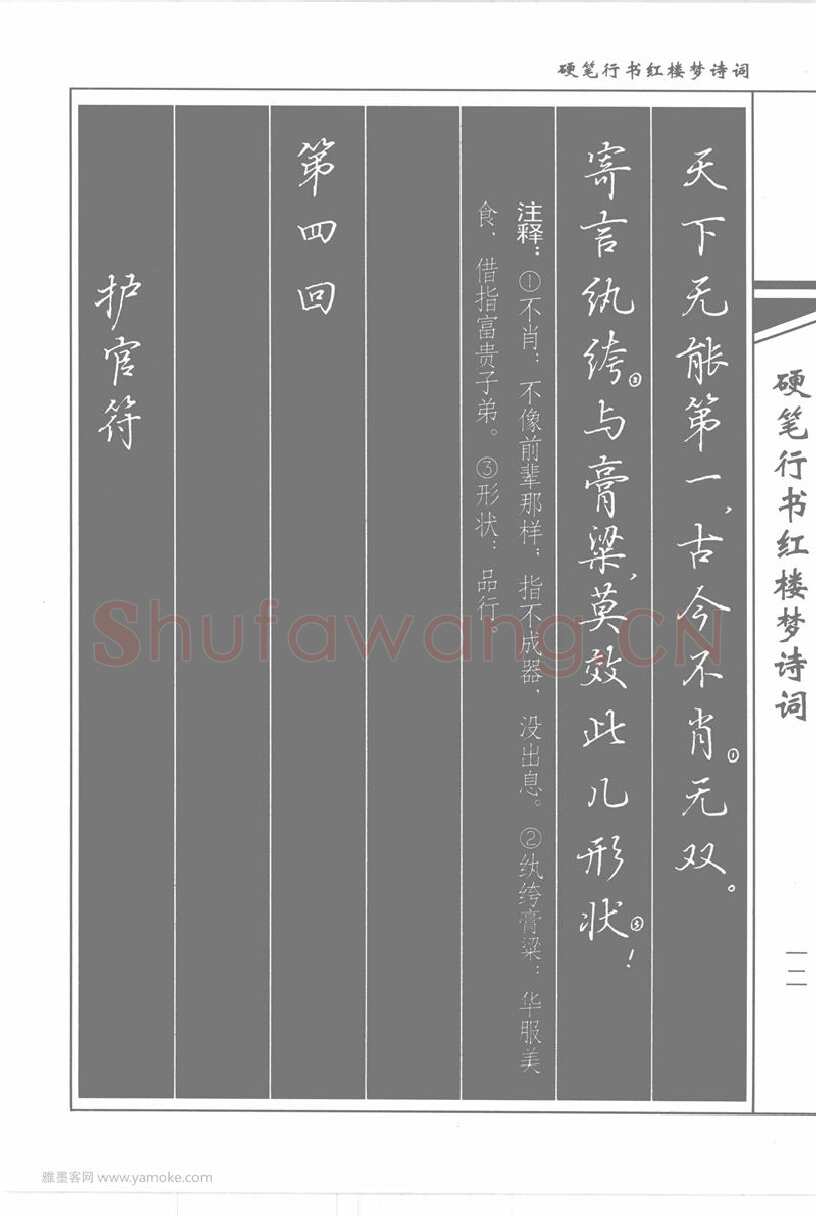 硬笔行书红楼梦诗词
天下无能第一,古今不肖①无双。
寄言纨绔②与膏粱,莫效此儿形状③!
注释:①不肖:不像前辈那样;指不成器、没出息。②纨绔膏粱:华服美
食,借指富贵子弟。③形状:品行。
第四回
护官符
硬笔行书红楼梦诗词
一二
Shufawang.CN
雅墨客网 www.yamoke.com